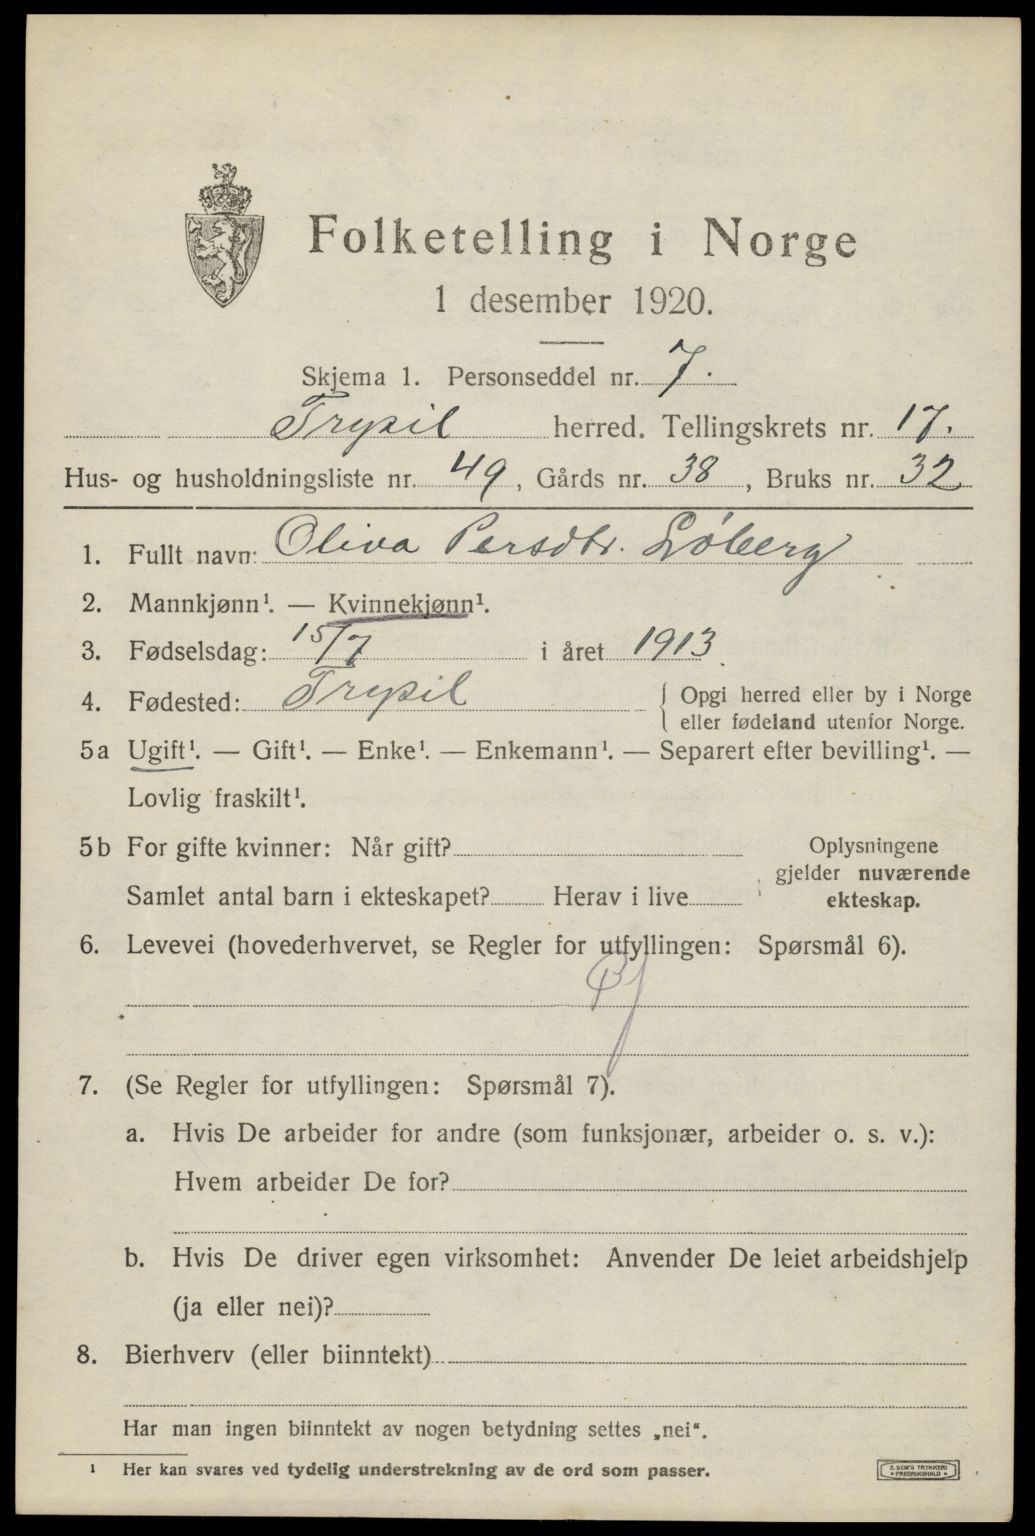 Folketelling i Norge
1 desember 1920.
Skjema 1. Personseddel nr. 7.
Trysil herred. Tellingskrets nr. 17.
Hus- og husholdningsliste nr. 49, Gårds nr. 38, Bruks nr. 32
1. Fullt navn: Oliva Persdtr. Løberg
2. Mannkjønn¹. — Kvinnekjønn¹.
3. Fødselsdag: 15/7 i året 1913
4. Fødested: Trysil { Opgi herred eller by i Norge
eller fødeland utenfor Norge.
5a Ugift¹. — Gift¹. — Enke¹. — Enkemann¹. — Separert efter bevilling¹. —
Lovlig fraskilt¹.
5b For gifte kvinner: Når gift? Oplysningene
gjelder nuværende
Samlet antal barn i ekteskapet? Herav i live ekteskap.
6. Levevei (hovederhvervet, se Regler for utfyllingen: Spørsmål 6).
7. (Se Regler for utfyllingen: Spørsmål 7).
a. Hvis De arbeider for andre (som funksjonær, arbeider o. s. v.):
Hvem arbeider De for?
b. Hvis De driver egen virksomhet: Anvender De leiet arbeidshjelp
(ja eller nei)?
8. Bierhverv (eller biinntekt)
Har man ingen biinntekt av nogen betydning settes „nei“.
¹ Her kan svares ved tydelig understrekning av de ord som passer.
E. SEM'S TRYKKERI
FREDRIKSHALD